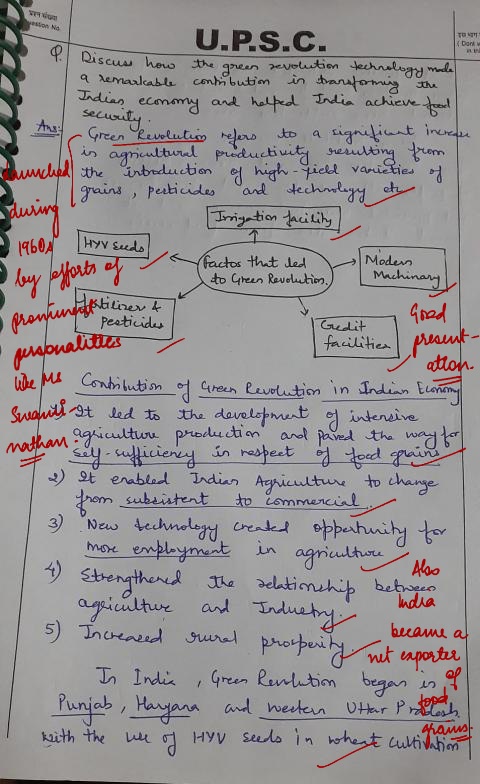 प्रश्न संख्या
Question No.
U.P.S.C.
(Dont w
in thi
Q. Discuss how the green revolution technology made
a remarkable contribution in transforming the
Indian economy and helped India achieve food
security.
Ans: Green Revolution refers to a significant increase
in agricultural productivity resulting from
the introduction of high-yield varieties of
grains, pesticides and technology etc
launched
during
1960s
by efforts of
prominent
personalities
like MS
Swami-
nathan.
Irrigation facility
HYV Seeds
Factos that led
to Green Revolution.
Modern
Machinary
Fertilizer &
Pesticides
Credit
facilities
Good
present-
ation.
Contribution of Green Revolution in Indian Economy
1) It led to the development of intensive
agriculture production and paved the way for
self-sufficiency in respect of food grains
2) It enabled Indian Agriculture to change
from subsistent to commercial.
3) New technology created opportunity for
more employment in agriculture
4) Strengthered the relationship between
agriculture and Industry.
5) Increased rural prosperity.
Also
India
became a
net exporter
of
food
grains.
In India, Green Revolution began in
Punjab, Haryana and western Uttar Pradesh
with the use of HYV seeds in wheat cultivation